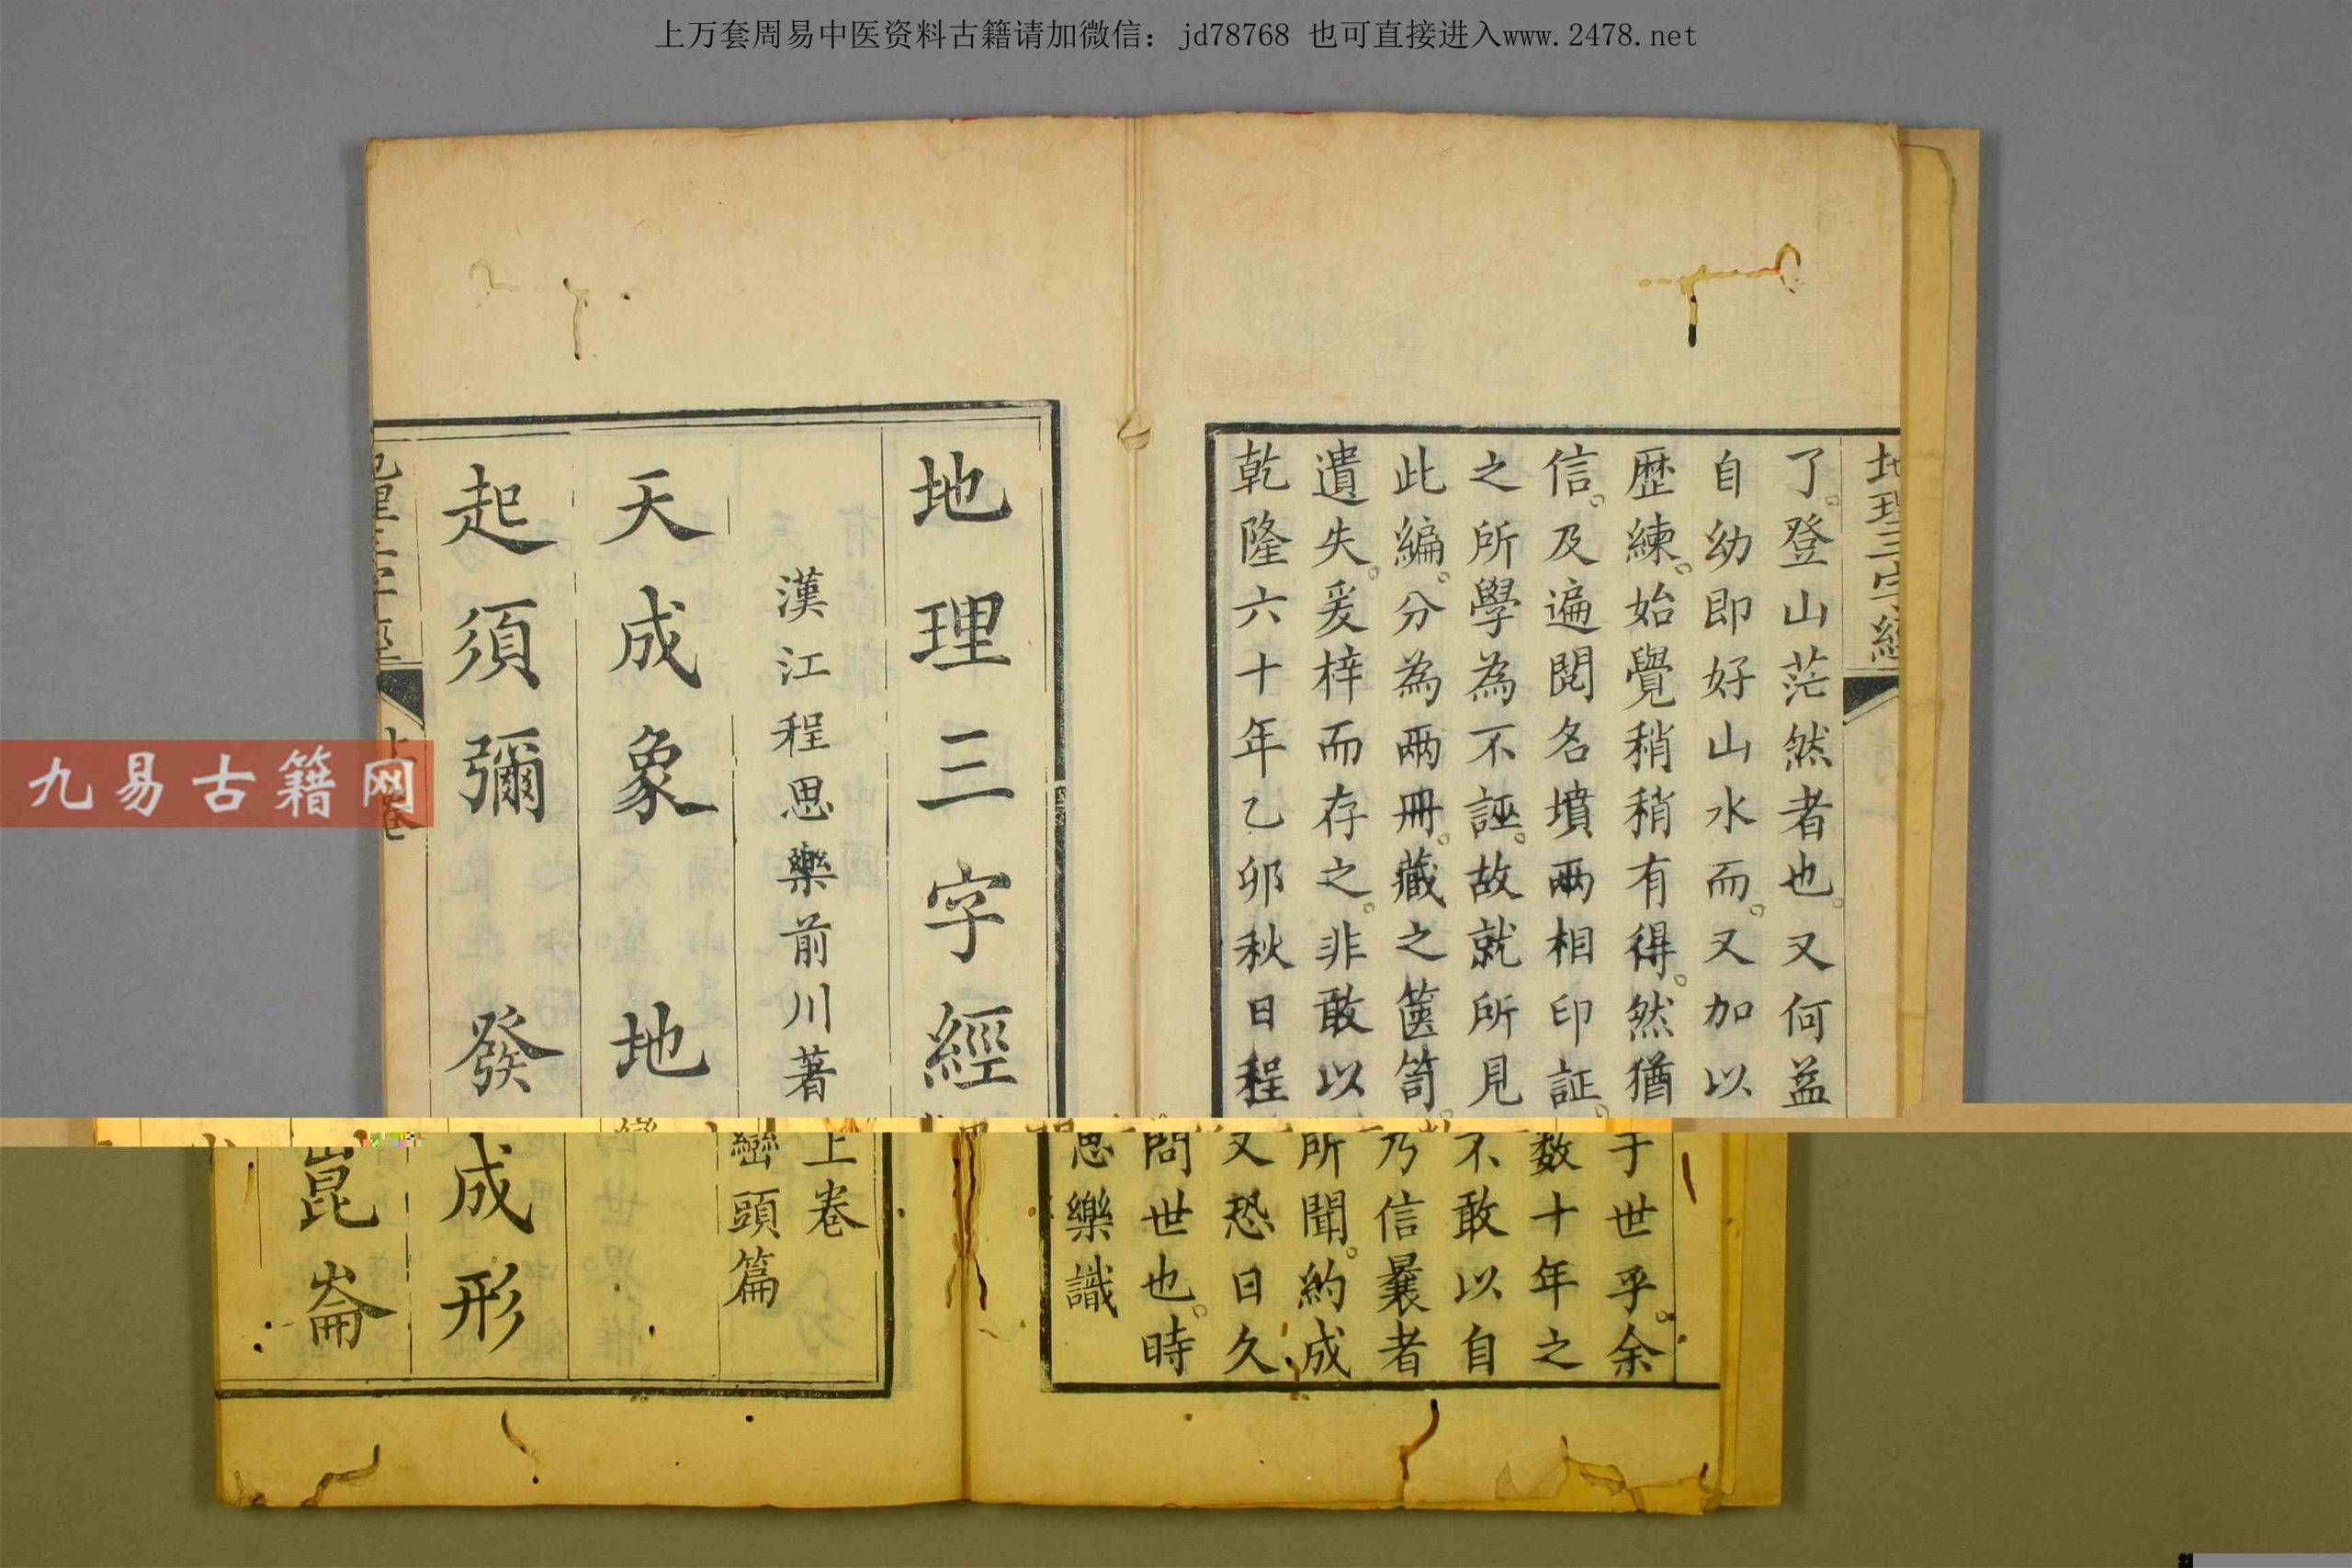 上万套周易中医资料古籍请加微信：jd78768 也可直接进入www.2478.net
地理三字經
了。登山茫然者也。又何益于世乎。余
自幼即好山水而。又加以数十年之
歷練。始覺稍稍有得。然猶不敢以自
信。及遍閱名墳兩相印証。乃信曩者
之所學為不誣。故就所見所聞。約成
此編。分為兩冊。藏之篋笥。又恐日久
遺失。爰梓而存之。非敢以問世也。時
乾隆六十年乙卯秋日程思樂識
地理三字經 上卷
巒頭篇
漢江程思樂前川著
天成象 地成形
起須彌 發崑崙
地理三字經 上卷
九易古籍网